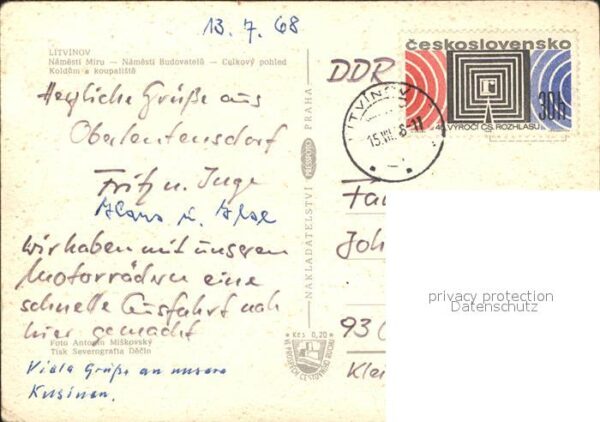 13.7.68
LITVÍNOV
Náměstí Míru — Náměstí Budovatelů — Celkový pohled
Koldům a koupaliště
Herzliche Grüße aus
Oberleutensdorf
Fritz u. Inge
Klaus u.
Wir haben mit unseren
Motorrädern eine
schnelle Ausfahrt nach
hier gemacht
Foto Antonín Miškovský
Tisk Severografia Děčín
Viele Grüße an unsere
Kusinen.
NAKLADATELSTVÍ PRESSFOTO PRAHA
Kčs 0,20
DDR
československo
30h
VÝROČÍ ČS. ROZHLASU
LITVÍNOV
15.VII.68-11
Fam
Joh
93
Klei
privacy protection
Datenschutz